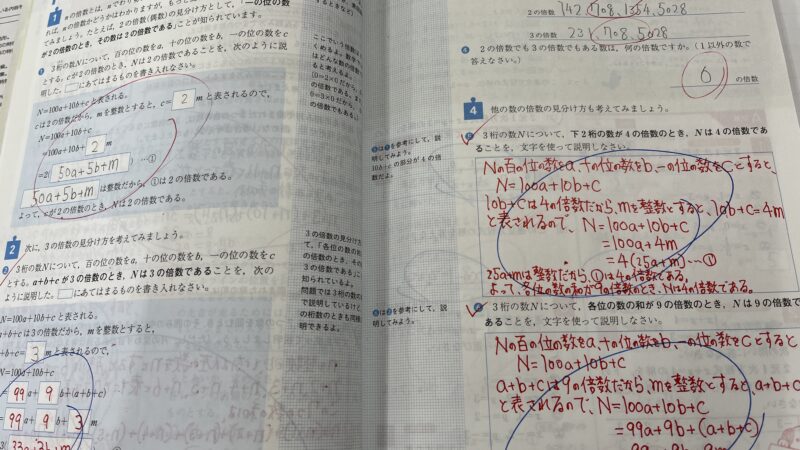 1 nの倍数とは、
れば、nの倍数かどうかはわかりますが、もっと
てみましょう。たとえば、2の倍数(偶数)の見分け方として、「一の位の数
が2の倍数のとき、その数は2の倍数である」ことが知られています。
3桁の数Nについて、百の位の数をa、十の位の数をb、一の位の数をc
とする。cが2の倍数のとき、Nは2の倍数であることを、次のように説
明した。□にあてはまるものを書き入れなさい。
N=100a+10b+cと表される。
cは2の倍数だから、mを整数とすると、c=2mと表されるので、
N=100a+10b+c
=100a+10b+2m
=2(50a+5b+m) …①
50a+5b+mは整数だから、①は2の倍数である。
よって、cが2の倍数のとき、Nは2の倍数である。
2 次に、3の倍数の見分け方を考えてみましょう。
3桁の数Nについて、百の位の数をa、十の位の数をb、一の位の数をc
とする。a+b+cが3の倍数のとき、Nは3の倍数であることを、次の
ように説明した。□にあてはまるものを書き入れなさい。
N=100a+10b+cと表される。
a+b+cは3の倍数だから、mを整数とすると、
a+b+c=3mと表されるので、
N=100a+10b+c
=99a+9b+(a+b+c)
=99a+9b+3m
3(33a+3b+m)
ここでいう倍数の
くめるよ。
はどんな数の倍数で
ると考えるよ。
[0=2×0だから、
の倍数である。また
0=3×0だから、
の倍数でもある。]
3の倍数の見分け方
て、「各位の数の和
の倍数のとき、その
3の倍数である」こ
知られているよ。
問題では3桁の数の
で説明しているけど
の桁数のときも同様
明できるよ。
2の倍数 142,708,1354,5028
3の倍数 231,708,5028
2の倍数でも3の倍数でもある数は、何の倍数ですか。(1以外の数で
答えなさい。)
6 の倍数
4 他の数の倍数の見分け方も考えてみましょう。
は1を参考にして、説
明してみよう。
10b+cの部分が4の倍
数だよ。
3桁の数Nについて、下2桁の数が4の倍数のとき、Nは4の倍数であ
ることを、文字を使って説明しなさい。
Nの百の位の数をa、十の位の数をb、一の位の数をcとすると、
N=100a+10b+c
10b+cは4の倍数だから、mを整数とすると、10b+c=4m
と表されるので、N=100a+10b+c
=100a+4m
=4(25a+m)…①
25a+mは整数だから、①は4の倍数である。
よって、各位の数の和が9の倍数のとき、Nは4の倍数である。
は2を参考にして、説
明してみよう。
3桁の数Nについて、各位の数の和が9の倍数のとき、Nは9の倍数で
あることを、文字を使って説明しなさい。
Nの百の位の数をa、十の位の数をb、一の位の数をcとすると、
N=100a+10b+c
a+b+cは9の倍数だから、mを整数とすると、a+b+c
と表されるので、N=100a+10b+c
=99a+9b+(a+b+c)
=99a+9b+9m